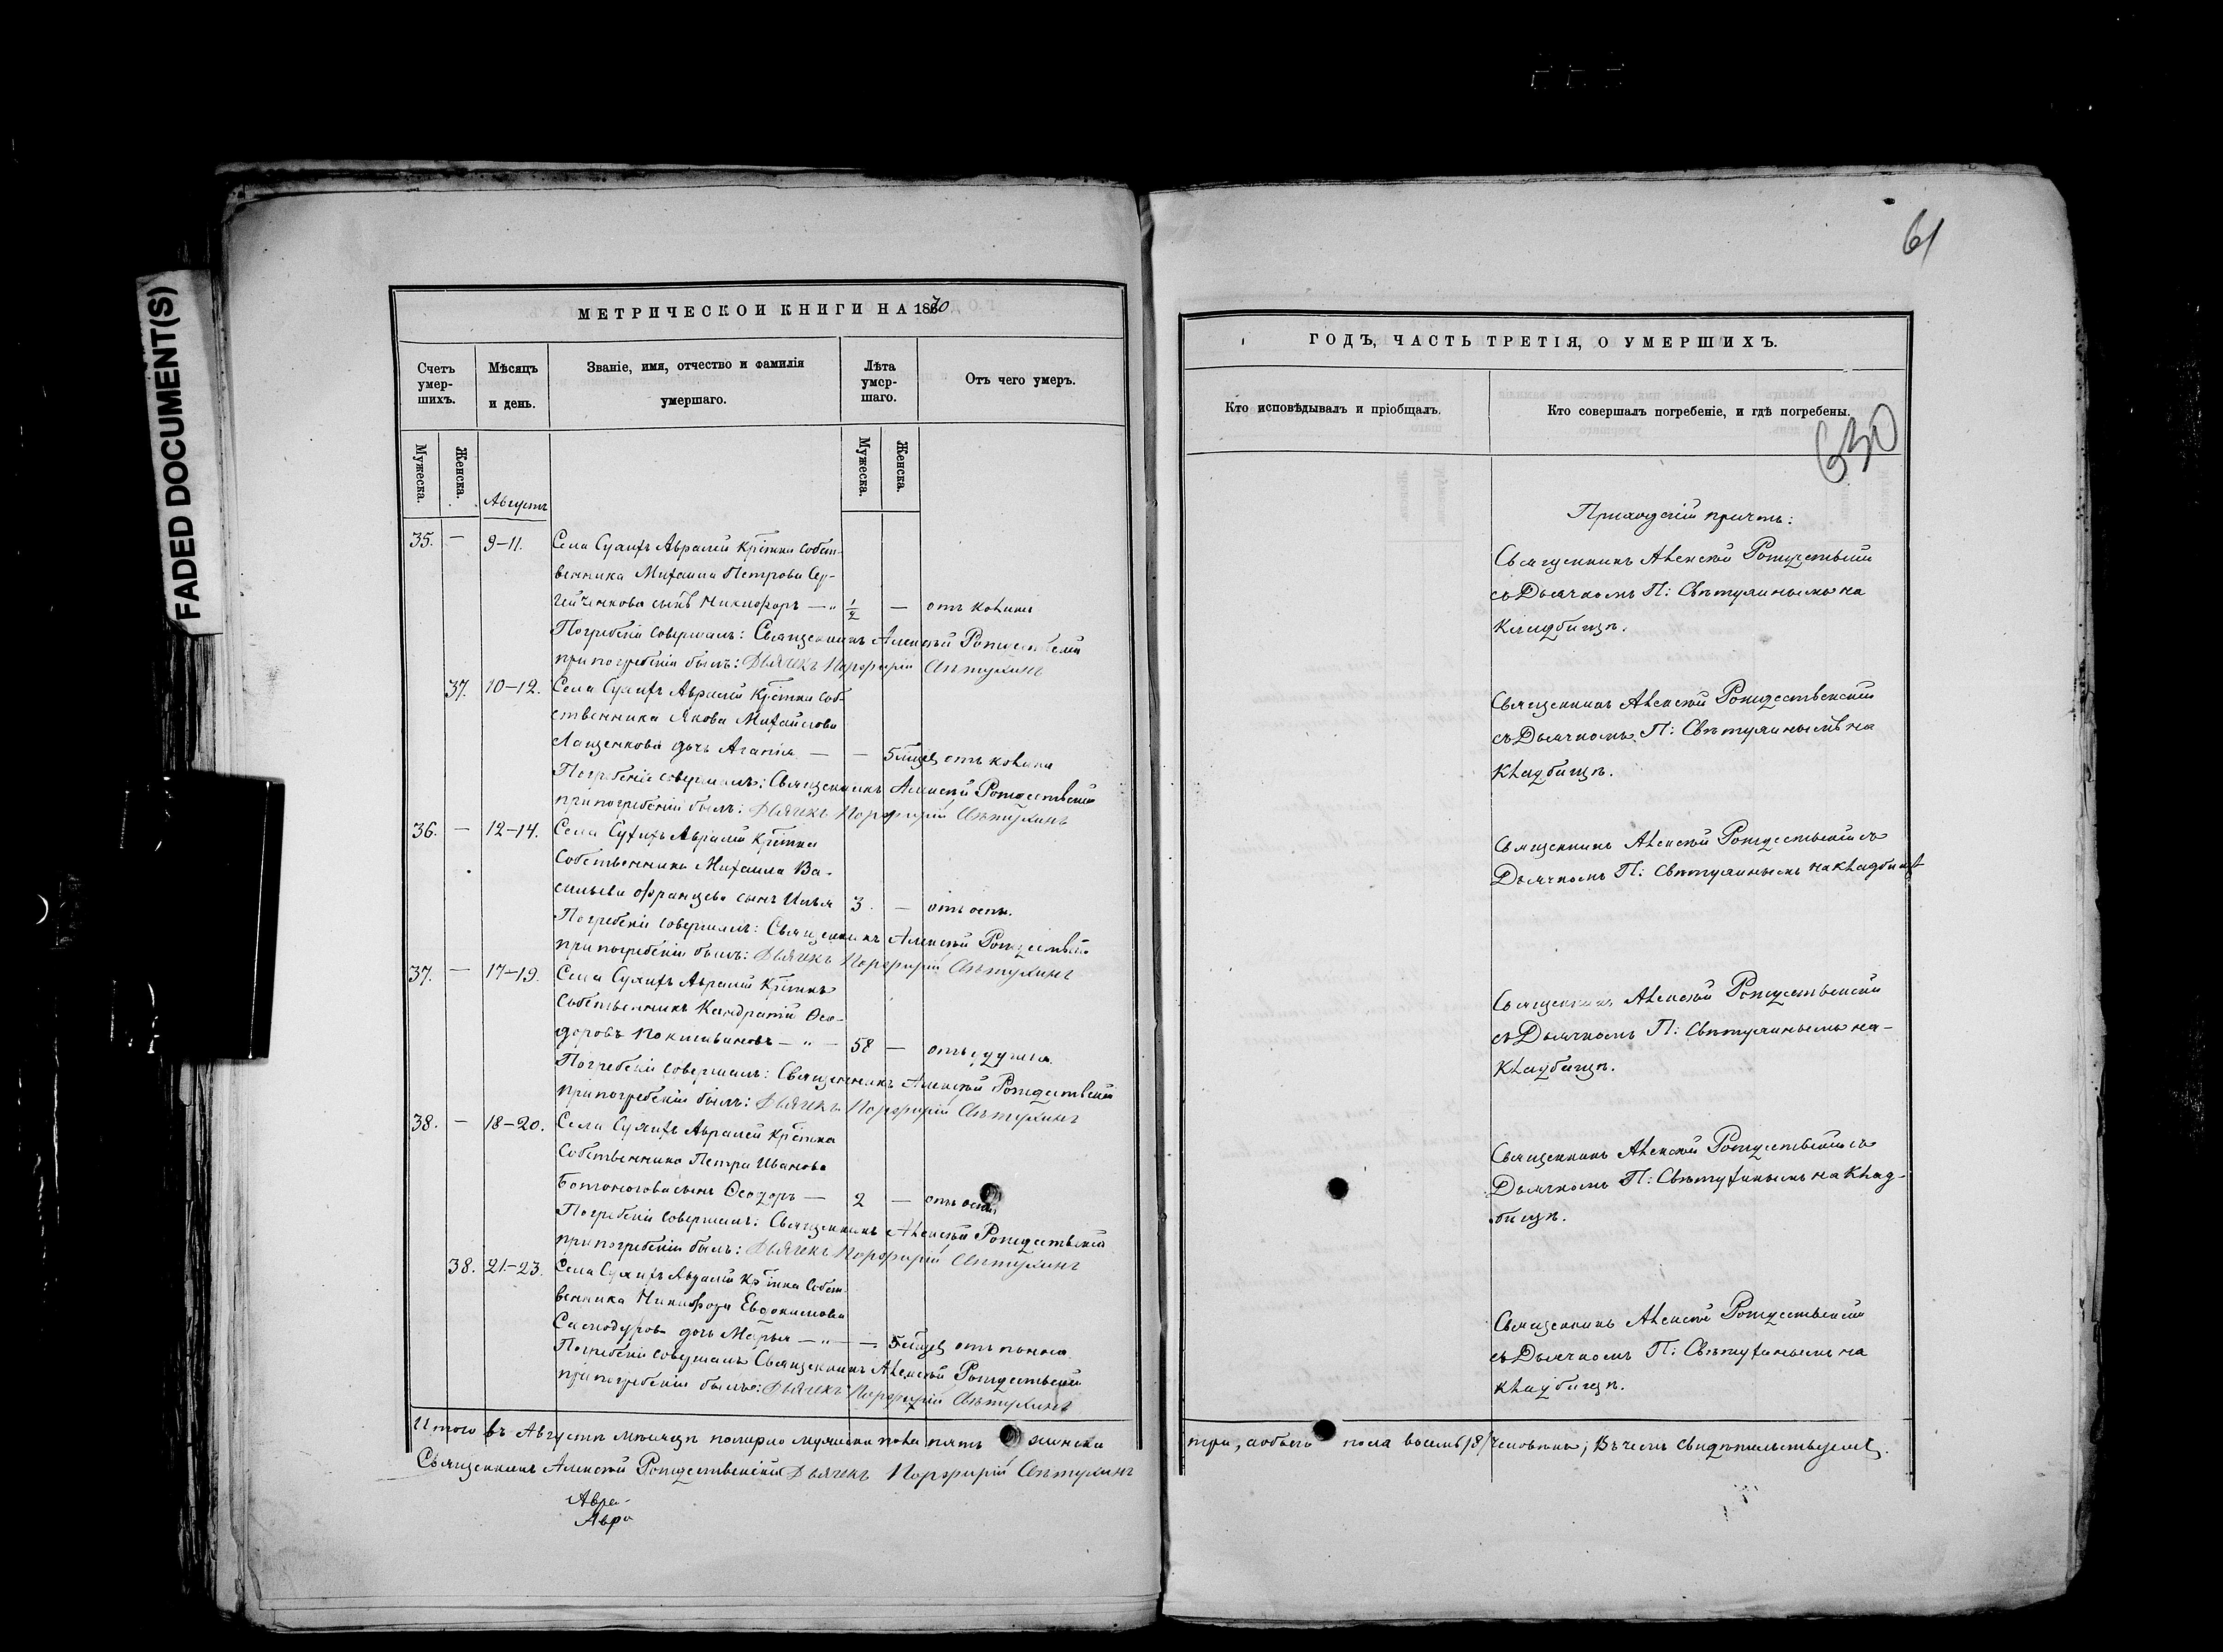 FADED DOCUMENT(S)
МЕТРИЧЕСКОЙ КНИГИ НА 1870
Счетъ умер-шихъ.
Мѣсяцъ и день.
Званіе, имя, отчество и фамилія умершаго.
Лѣта умер-шаго.
Отъ чего умеръ.
Мужеска.
Женска.
Мужеска.
Женска.
Августъ
35. — 9-11. Села Сухихъ Авралей Крѣстна собст-
венника Михаила Петрова Сер-
гейченкова сынъ Никифоръ — „ 1/2 — отъ коклюш
Погребеніе совершалъ: Священникъ Алексѣй Рождественскій
при погребеніи былъ: Дьячекъ Порфирій Свѣтухинъ
37. 10-12. Села Сухихъ Авралей Крѣстна соб-
ственника Якова Михайлова
Лащенкова дочь Агапія — — 5 мѣсец отъ
Погребеніе совершалъ: Священникъ Алексѣй Рождественскій
при погребеніи былъ: Дьячекъ Порфирій Свѣтухинъ
36. — 12-14. Села Сухихъ Авралей Крѣстна
Собственника Михаила Ва-
сильева сынъ Илья 3. — отъ оспы.
Погребеніе совершалъ: Священникъ Алексѣй Рождественскій
при погребеніи былъ: Дьячекъ Порфирій Свѣтухинъ
37. — 17-19. Села Сухихъ Авралей Крѣстнъ
Собственникъ Кандратій Ѳео-
доровъ — „ — 58 — отъ удушья.
Погребеніе совершалъ: Священникъ Алексѣй Рождественскій
при погребеніи былъ: Дьячекъ Порфирій Свѣтухинъ
38. — 18-20. Села Сухихъ Авралей Крѣстна
Собственника Петра Иванова
сынъ Ѳеодоръ — 2 — отъ оспы
Погребеніе совершалъ: Священникъ Алексѣй Рождественскій
при погребеніи былъ: Дьячекъ Порфирій Свѣтухинъ
38. 21-23. Села Сухихъ Авралей Крѣстна Собст-
венника Никифора Евдокимова
дочь Марья — „ — — 5 мѣсец отъ поноса
Погребеніе совершалъ Священникъ Алексѣй Рождественскій
при погребеніи былъ: Дьячекъ Порфирій Свѣтухинъ
Итого въ Августѣ мѣсяцѣ померло мужеска пола пять женска
Священникъ Алексѣй Рождественскій Дьячекъ Порфирій Свѣтухинъ
Авра-
Авра
61
ГОДЪ, ЧАСТЬ ТРЕТІЯ, О УМЕРШИХЪ.
Кто исповѣдывалъ и пріобщалъ.
Кто совершалъ погребеніе, и гдѣ погребены.
630
Приходскій причтъ:
Священникъ Алексѣй Рождественскій
съ Дьячкомъ П: Свѣтухинымъ на
Кладбищѣ.
Священникъ Алексѣй Рождественскій
съ Дьячкомъ П: Свѣтухинымъ на
Кладбищѣ.
Священникъ Алексѣй Рождественскій съ
Дьячкомъ П: Свѣтухинымъ на Кладбищѣ
Священникъ Алексѣй Рождественскій
съ Дьячкомъ П: Свѣтухинымъ на-
Кладбищѣ.
Священникъ Алексѣй Рождественскій съ
Дьячкомъ П: Свѣтухинымъ на Клад-
бищѣ.
Священникъ Алексѣй Рождественскій
съ Дьячкомъ П: Свѣтухинымъ на
кладбищѣ.
три, а обоего пола восемь /8/ человѣкъ; въ чемъ свидѣтельствуемъ.